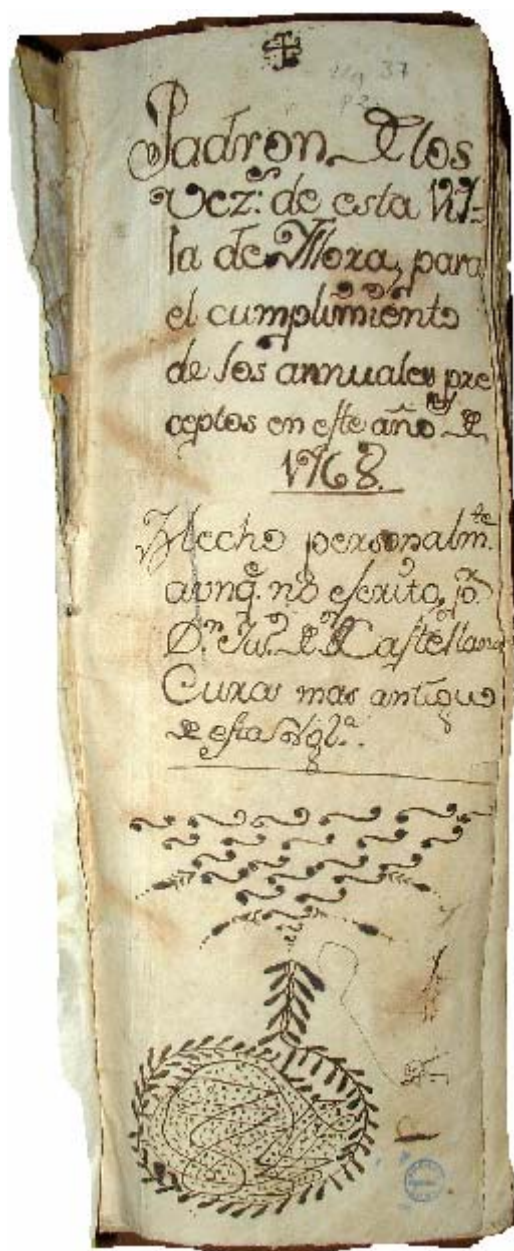 Leg 37
Padron de los
Vez.os de esta Vi-
lla de Mora, para
el cumplimiento
de los annuales pre
ceptos en este año de
1768.
Hecho personalm.te
aunq.e no escrito, p.r
D.n Ju.
Castellanos
Cura mas antiguo
de esta Igl.a